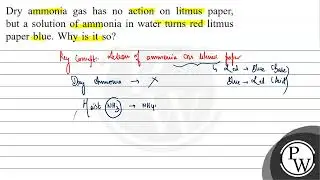 Dry ammonia gas has no action on litmus paper,
but a solution of ammonia in water turns red litmus
paper blue. Why is it so?
Key Concept: Action of ammonia on litmus paper
Red → Blue (Base)
Dry Ammonia → X
Blue → Red (Acid)
Moist NH₃ → NH₄
PW
PW